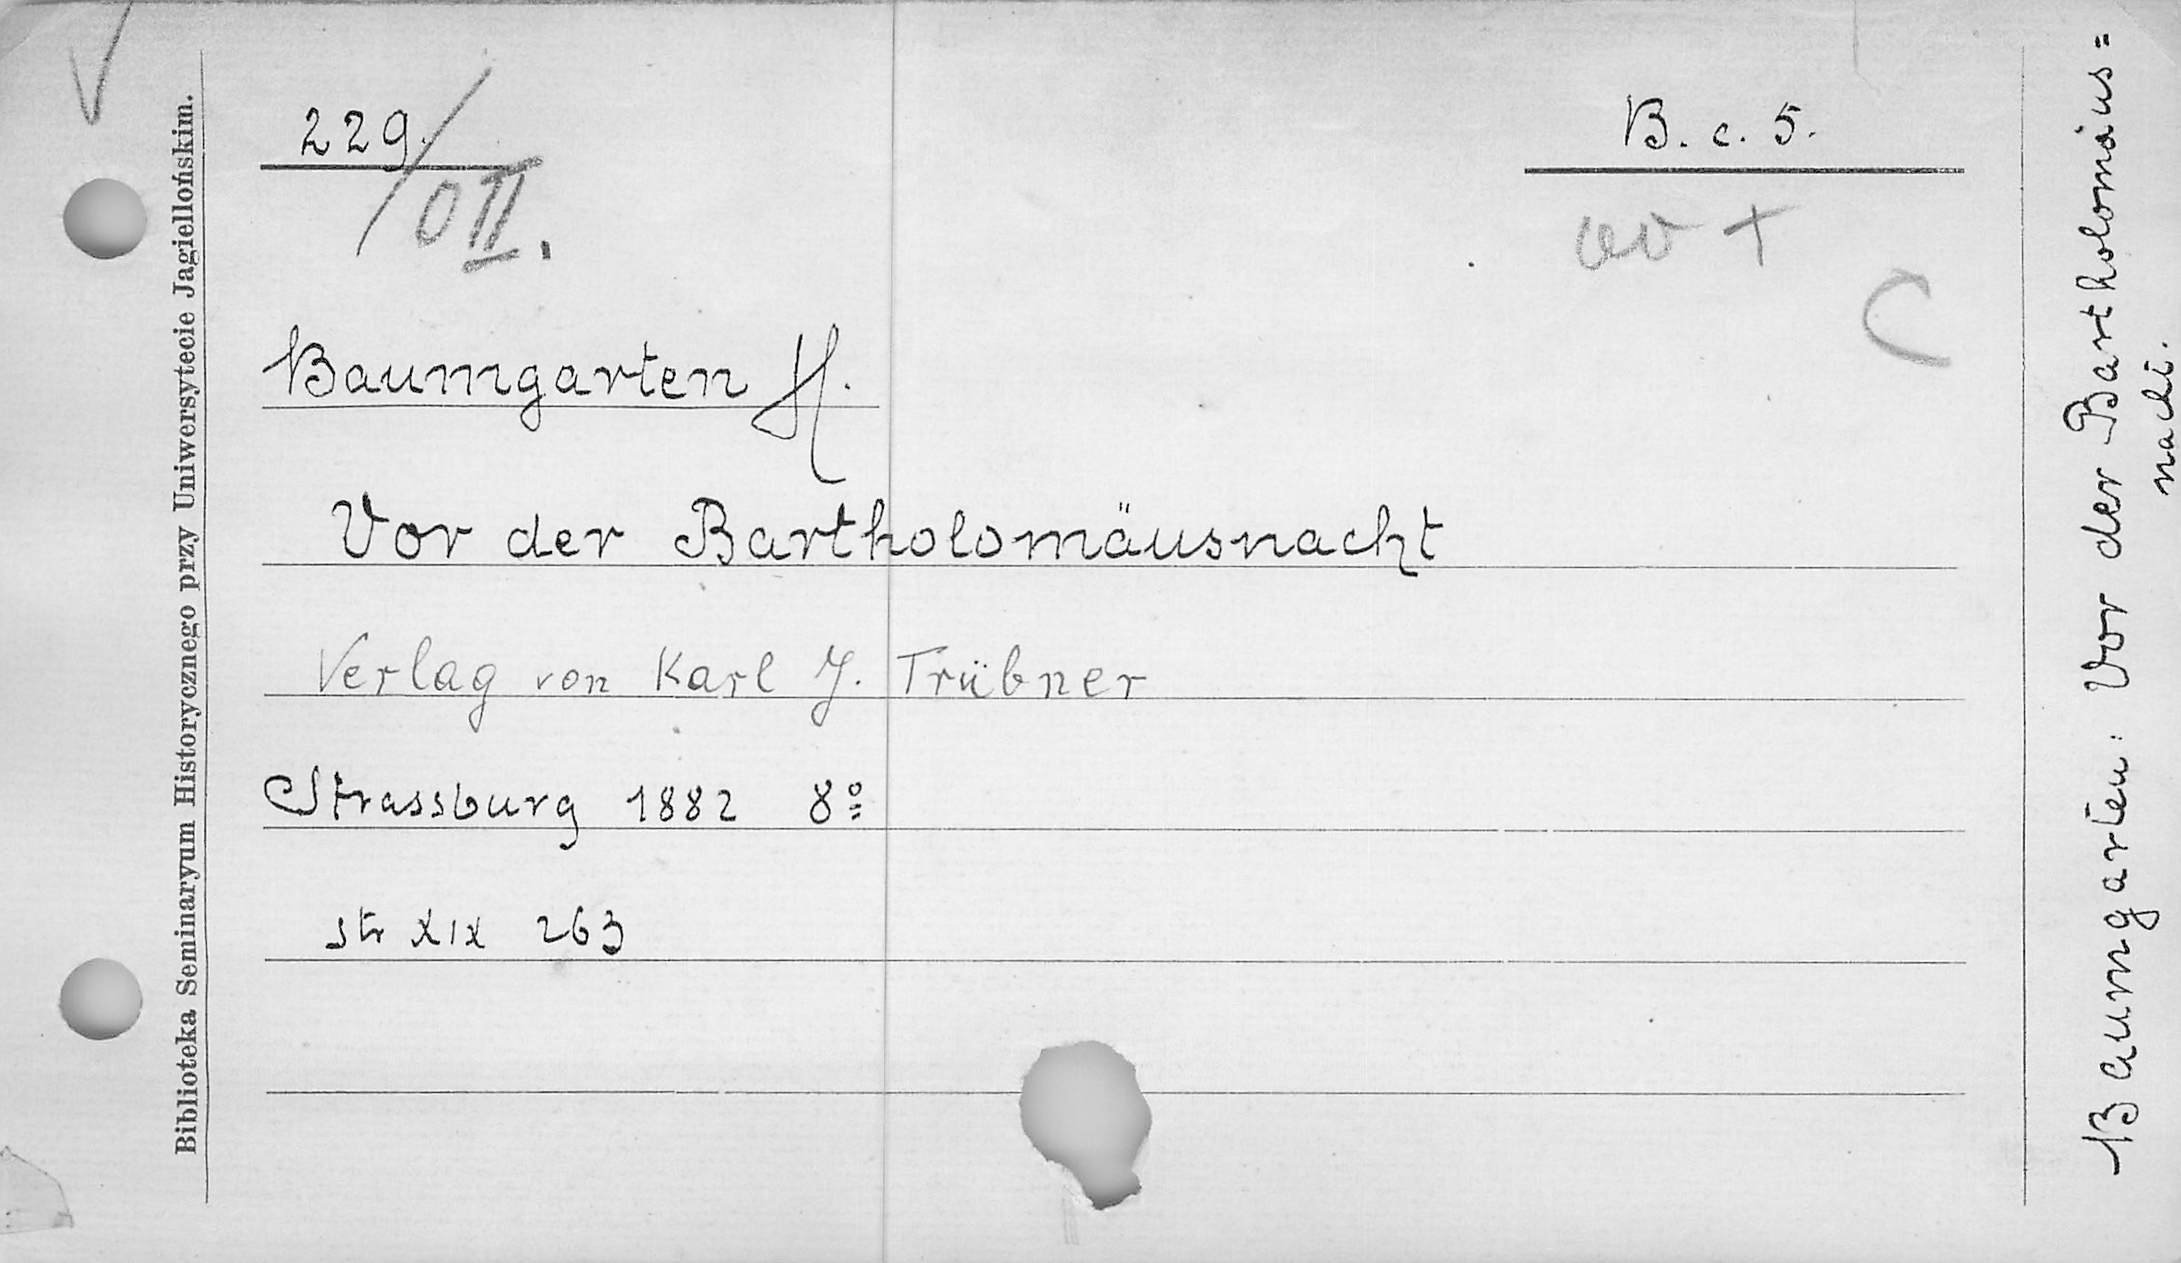 229.
B. c. 5.
O II.
C
Baumgarten H.
Vor der Bartholomäusnacht
Verlag von Karl J. Trübner
Strassburg 1882 8º
str XIX 263
Biblioteka Seminaryum Historycznego przy Uniwersytecie Jagiellońskim.
Baumgarten: Vor der Bartholomäus=
nacht.